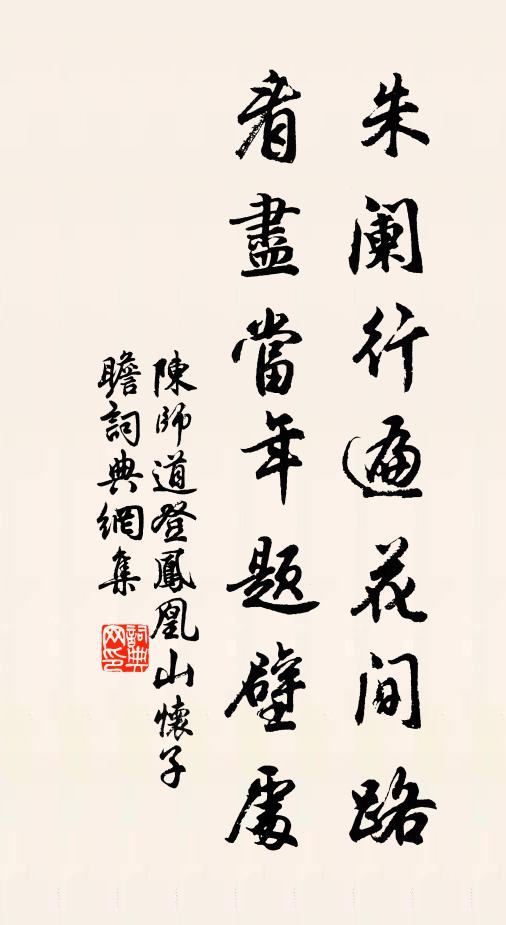 朱闌行遍花間路
看盡當年題壁處
陳師道登鳳凰山懷子
瞻詞典網集
詞典
网印